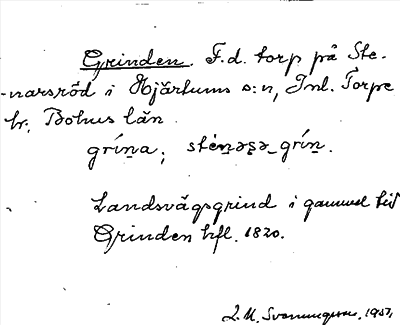 Grinden. F.d. torp på Ste-
-narsröd i Hjärtums s:n, Inl. Torpe
hr, Bohus län.
grína; sténəʂə_grín.
Landsvägsgrind i gammal tid
Grinden hfl. 1820.
1957,